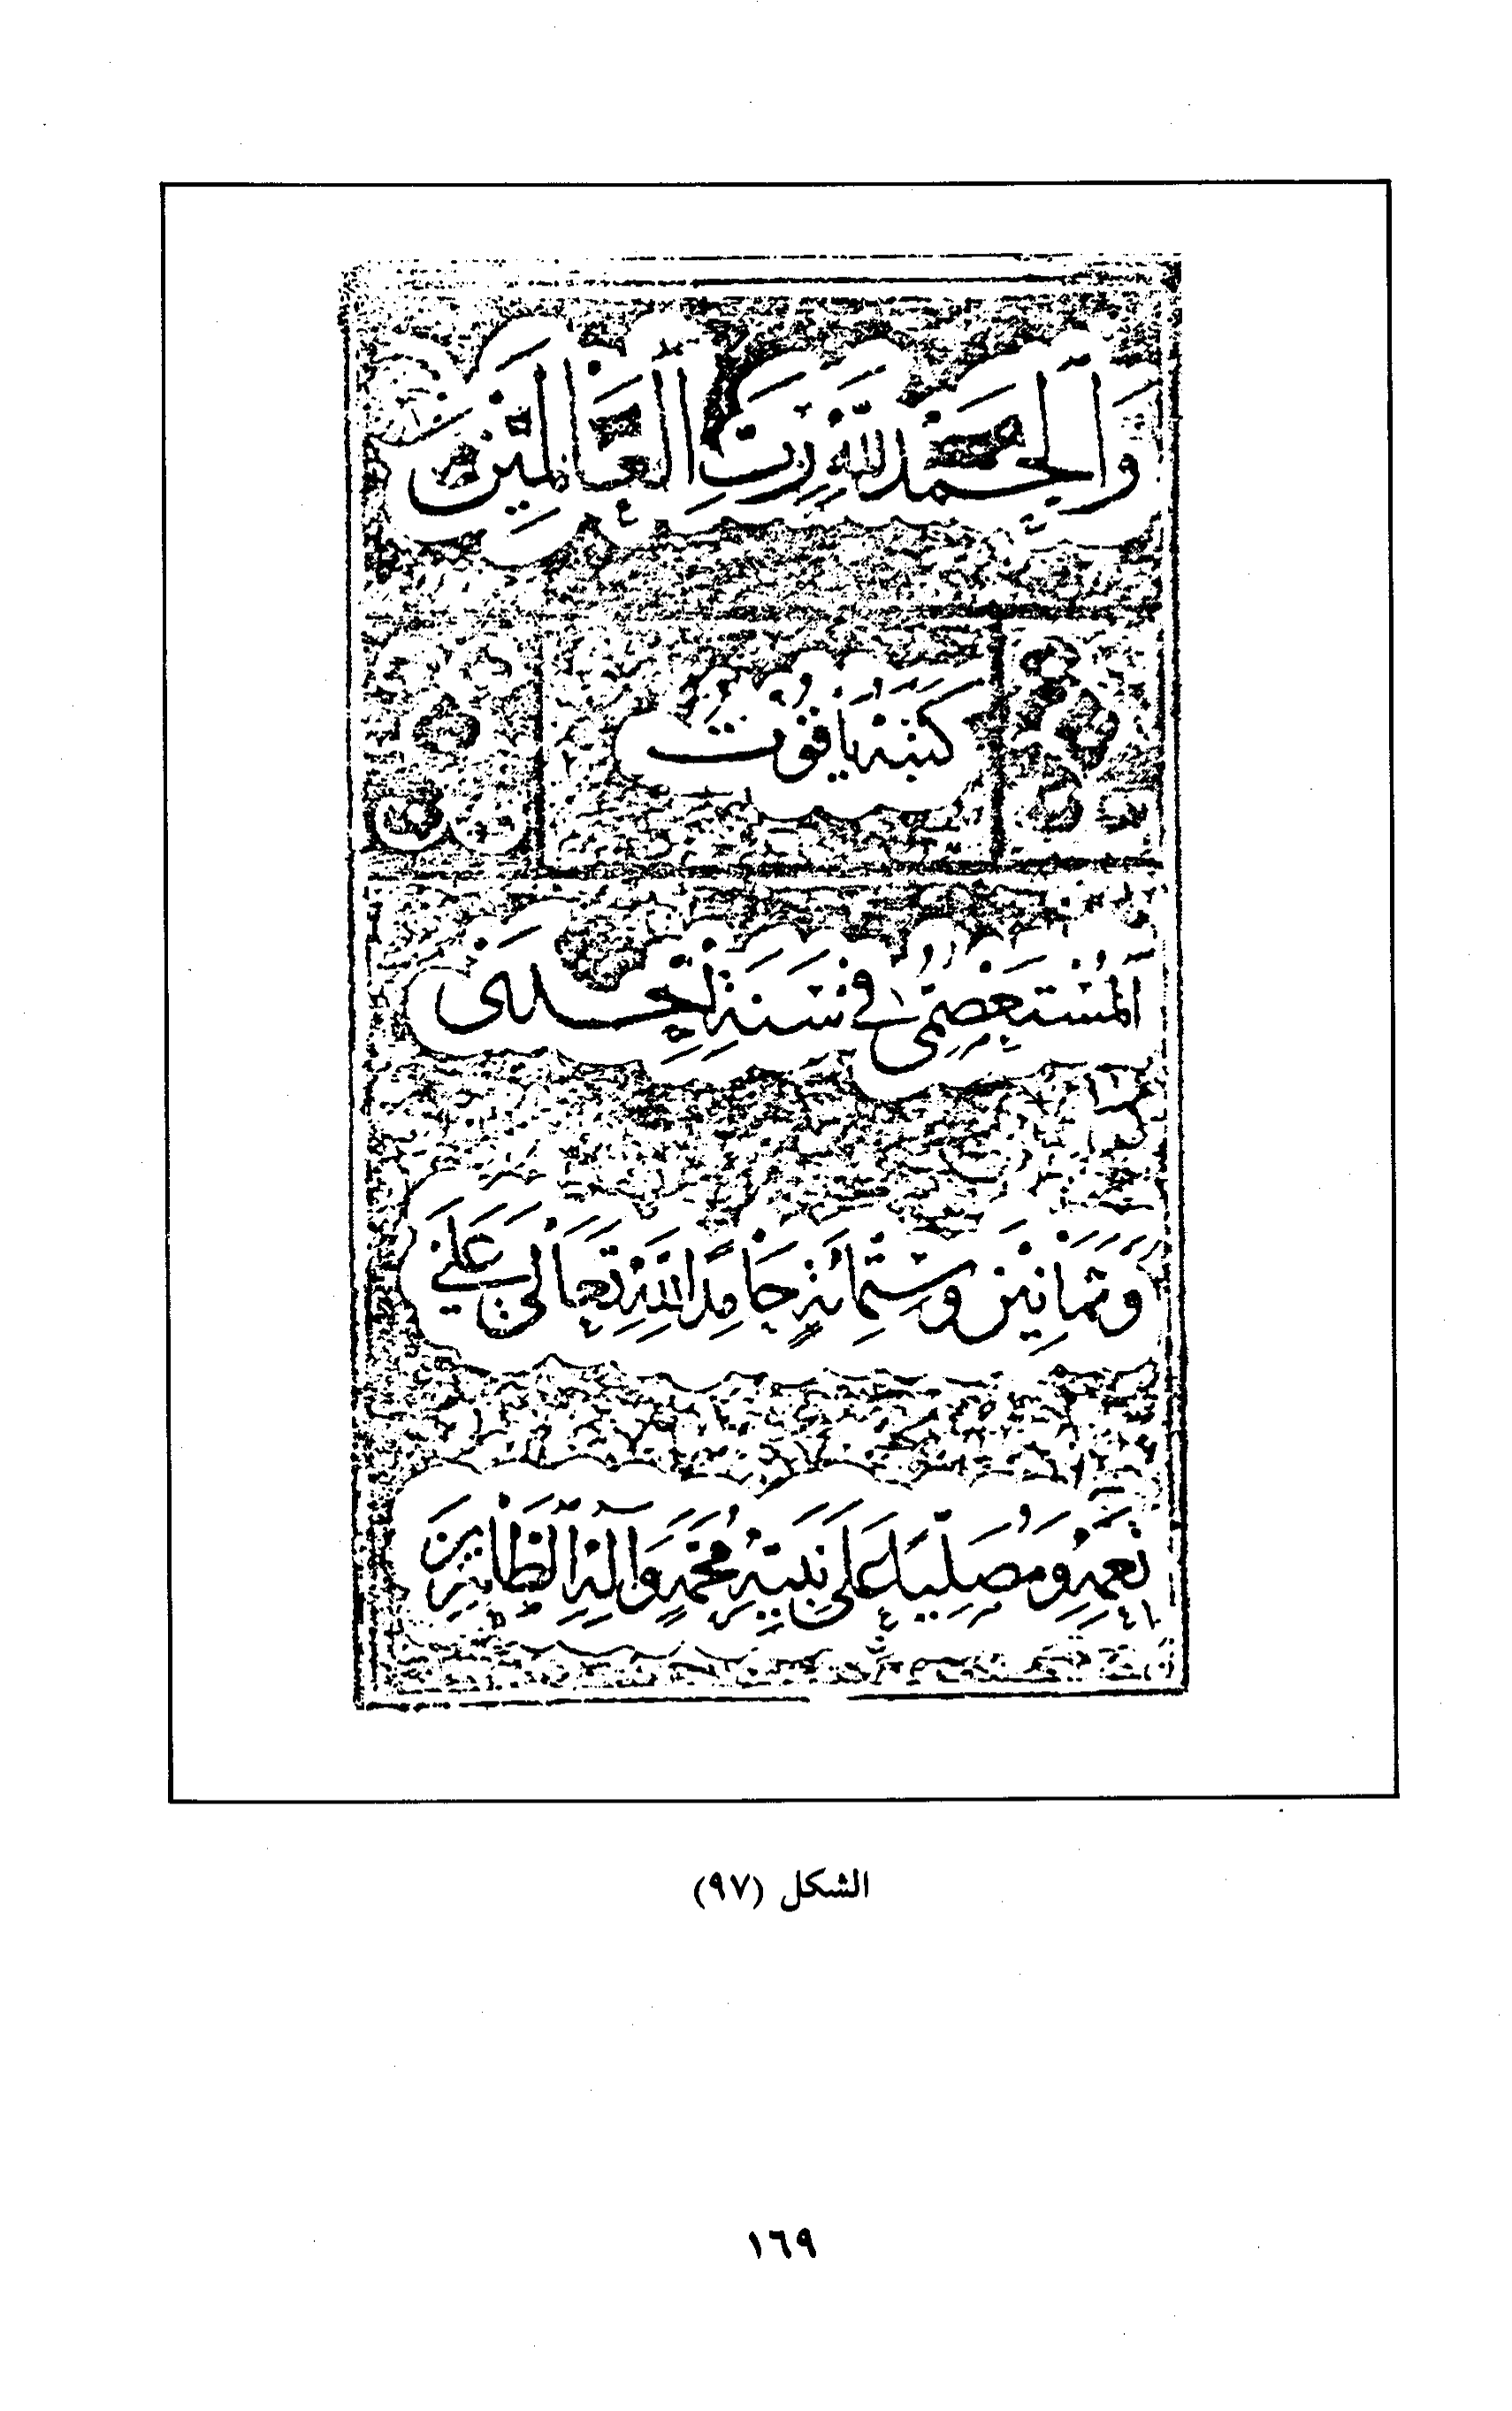 وَالْحَمْدُ لِلّٰهِ رَبِّ الْعَالَمِينَ
كَتَبَهُ يَاقُوتُ
الْمُسْتَعْصِمِيُّ فِي سَنَةِ إِحْدَى
وَثَمَانِينَ وَسِتِّمِائَةٍ حَامِدًا لِلّٰهِ تَعَالَى عَلَى
نِعَمِهِ وَمُصَلِّيًا عَلَى نَبِيِّهِ مُحَمَّدٍ وَآلِهِ الطَّاهِرِينَ
الشكل (٩٧)
١٦٩